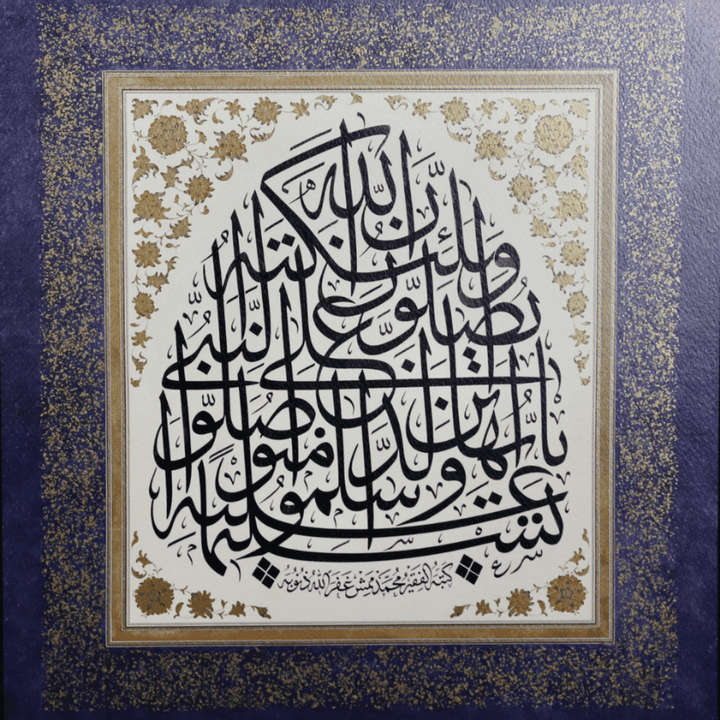 إن الله وملائكته
يصلون على النبي
يا أيها الذين آمنوا صلوا
عليه وسلموا تسليما
كتبه الفقير محمد ممش غفر الله ذنوبه